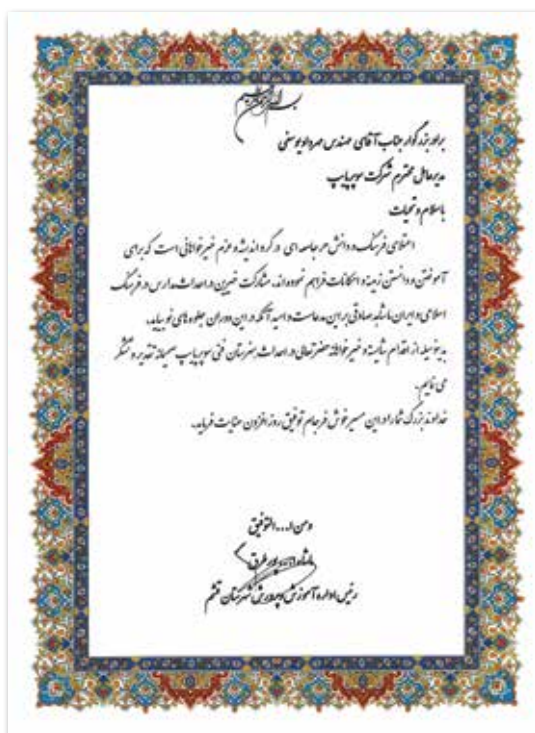 بسم الله الرحمن الرحیم
برادر بزرگوار جناب آقای مهندس مهرداد یوسفی
مدیرعامل محترم شرکت سوپرپایپ
با سلام و تحیات
اعتلای فرهنگ و دانش هر جامعه ای در گرو اندیشه و عزم خیرخواهانی است که برای
آموختن و دانستن زمینه و امکانات فراهم نموده‌اند، مشارکت خیرین در احداث مدارس در فرهنگ
اسلامی و ایران ما شاهد صادقی بر این مدعاست و امید آنکه در این دوران جلوه‌های نو بیابد.
بدینوسیله از اقدام شایسته و خیرخواهانه حضرتعالی در احداث هنرستان فنی سوپرپایپ صمیمانه تقدیر و تشکر
می نمایم.
خداوند بزرگ شما را در این مسیر خوش فرجام توفیق روزافزون عنایت فرماید.
ومن ا... التوفیق
رئیس اداره آموزش و پرورش شهرستان قشم